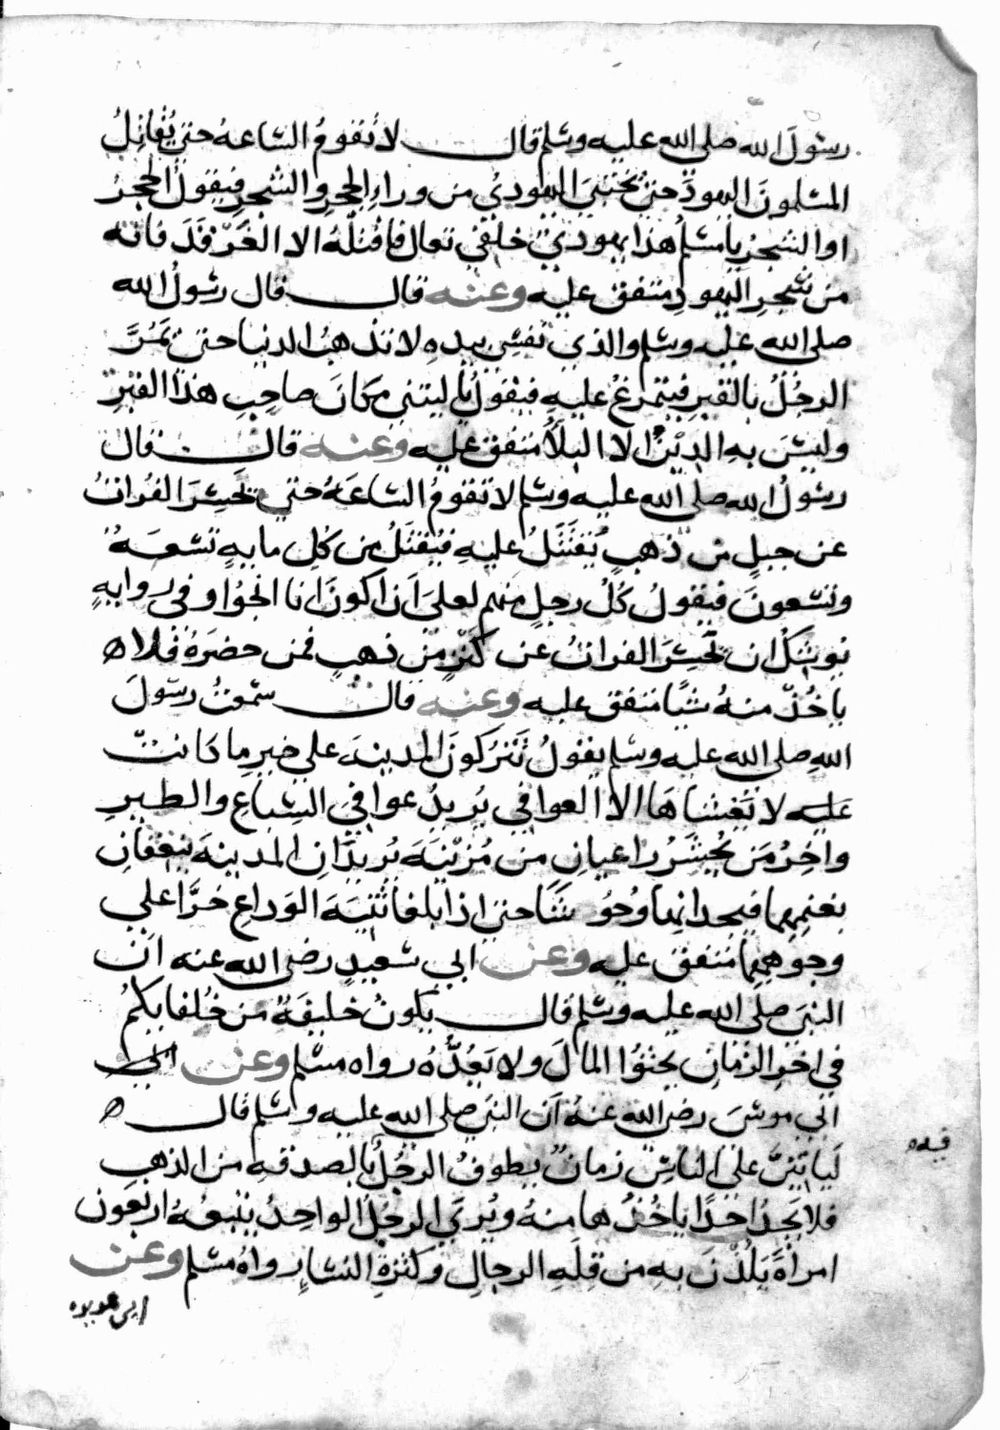 رسُولَ الله صلى الله عليه وسَلم قال لا تقومُ السَّاعةُ حتى يُقاتِلُ
المسْلمونَ اليهودَ حتى يختبىَ اليهوديُ من وراءِ الحجرِ والشجرِ فيقولُ الحجرُ
او الشجرُ يا مسْلمُ هذا يهوديٌ خلفي تعال فاقتلهُ الا الغَرْقَدَ فانهُ
من شجرِ اليهودِ متفق عليه وعنه قال قال رسُولُ الله
صلى الله عليه وسلم والذي نفسِي بيدهِ لا تذهبُ الدنيا حتى يمُرَّ
الرجُلُ بالقبرِ فيتمرغُ عليهِ فيقولُ يا ليتني مكانَ صاحِبِ هذا القبرِ
وليسَ بهِ الدِيْنُ الا البلأُ متفق عليه وعنه قال قال
رسُولُ الله صلى الله عليه وسلم لا تقومُ السَّاعَةُ حتي يحسِرَ الفُراتُ
عن جبلٍ من ذهبٍ يُقتَتَلُ عليهِ فيُقتَلُ من كُلِ مايةٍ تسْعَةٌ
وتسْعونَ فيقولُ كُلُ رجلٍ منهم لعلىَ اَنْ اكونَ انا انجُوا وفي روايةٍ
يوشِكُ ان يحْسِرَ الفراتُ عن كنزٍ منْ ذهبٍ فمن حضَرَهُ فلا ه
ياخُذْ منهُ شيًا متفق عليه وعنه قال سَمعتُ رسولَ
اللهِ صلى الله عليه وسلم يقولُ تَتركونَ المدينةَ على خيرِ ما كانتْ
عَليه لا يَغْشَاهَا الا العوافي يُريدُ عوافيَ السِّباعِ والطيرِ
واخِرُ مَن يُحشَرُ راعيانِ من مُزَيْنَةَ يُريدَانِ المدينةَ ينعِقانِ
بغنمِهِما فيجدانِها وُحُوشًا حتى اذا بلغا ثَنيَةَ الوَداعِ خرَّا على
وجوهِهِما متفق عليه وعن ابي سَعيدٍ رضى الله عنه اَن
النبيَ صلى الله عليه وسَلم قال يكونُ خليفَةٌ من خُلفايكمُ
في اخرِ الزمانِ يحثُوا المالَ ولا يَعُدُّهُ رواه مسْلم وعن ابي
ابي موسَى رضى الله عنهُ اَن النبيَ صلى الله عليه وسَلم قال ه
لَياتينَّ على الناسِ زمانٌ يطوفُ الرجُلُ بالصدقهِ من الذهبِ
فلا يَجدُ احَدًا ياخُذُها منهُ ويُرَي الرجُلُ الواحِدُ يتبعُهُ اربَعونَ
امراَةً يَلُذْنَ بهِ من قِلَهِ الرجالِ وكثرةِ النسَاءِ رواهُ مسْلم وعن
ابى هريره
فيه